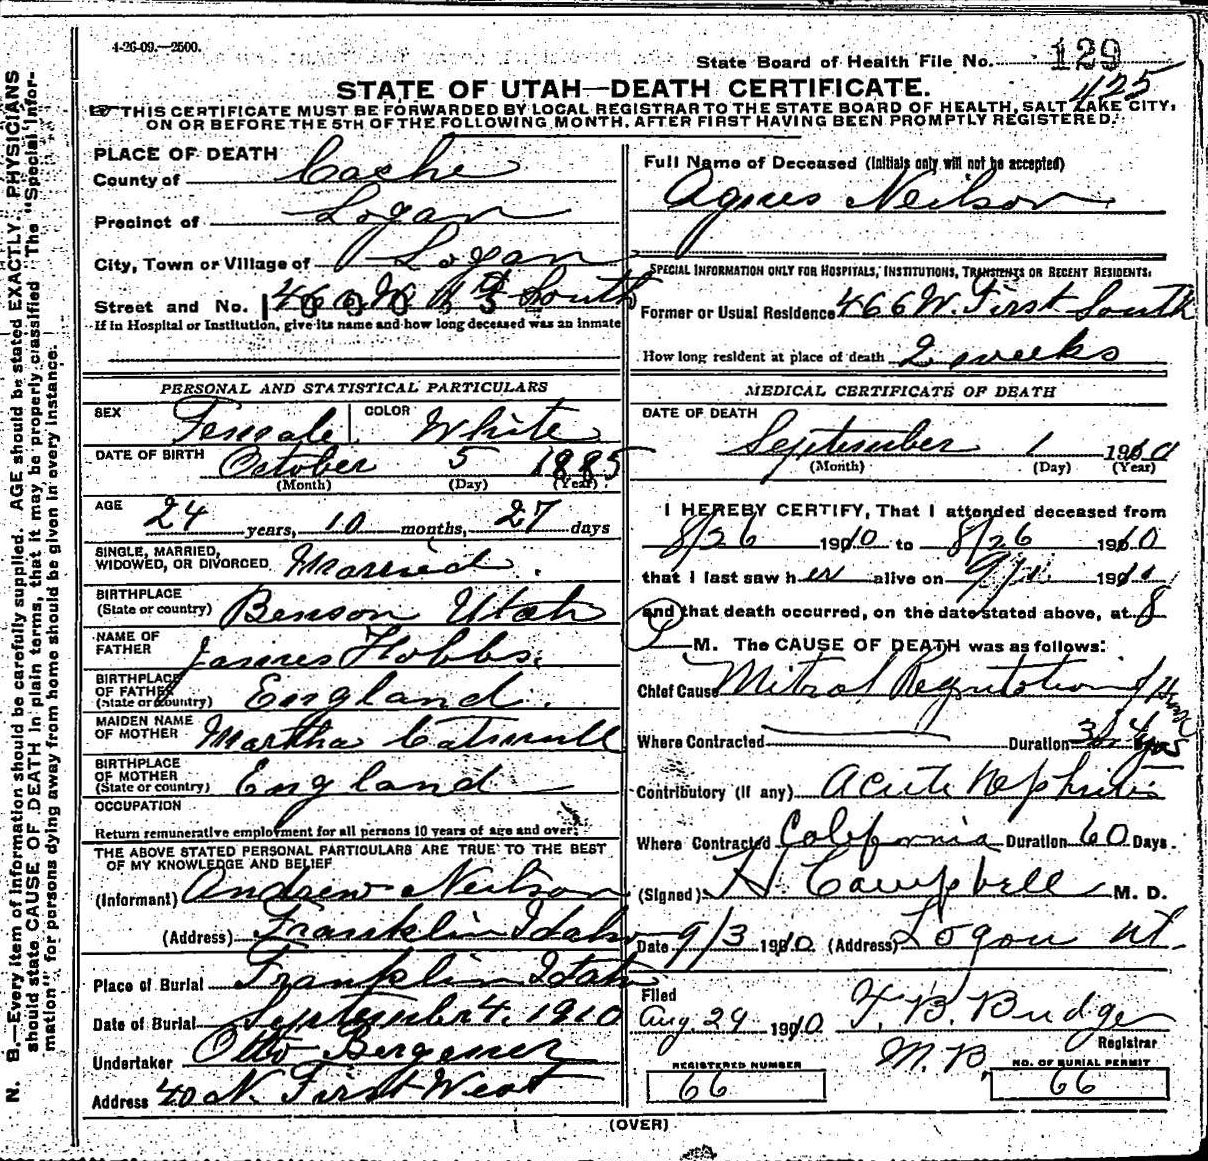 4-26-09.—2500.
State Board of Health File No. 129
425
STATE OF UTAH—DEATH CERTIFICATE.
THIS CERTIFICATE MUST BE FORWARDED BY LOCAL REGISTRAR TO THE STATE BOARD OF HEALTH, SALT LAKE CITY,
ON OR BEFORE THE 5TH OF THE FOLLOWING MONTH, AFTER FIRST HAVING BEEN PROMPTLY REGISTERED.
N. B.—Every item of information should be carefully supplied. AGE should be stated EXACTLY. PHYSICIANS
should state CAUSE OF DEATH in plain terms, that it may be properly classified. The "Special Infor-
mation" for persons dying away from home should be given in every instance.
PLACE OF DEATH
County of Cache
Precinct of Logan
City, Town or Village of Logan
Street and No. 466 W 1st South
If in Hospital or Institution, give its name and how long deceased was an inmate
PERSONAL AND STATISTICAL PARTICULARS
SEX Female COLOR White
DATE OF BIRTH October 5 1885
(Month) (Day) (Year)
AGE 24 years, 10 months, 27 days
SINGLE, MARRIED,
WIDOWED, OR DIVORCED Married.
BIRTHPLACE
(State or country) Benson Utah
NAME OF
FATHER James Hobbs.
BIRTHPLACE
OF FATHER
(State or country) England.
MAIDEN NAME
OF MOTHER Martha Catmull
BIRTHPLACE
OF MOTHER
(State or country) England
OCCUPATION
Return remunerative employment for all persons 10 years of age and over.
THE ABOVE STATED PERSONAL PARTICULARS ARE TRUE TO THE BEST
OF MY KNOWLEDGE AND BELIEF
(Informant) Andrew Neilson
(Address) Franklin Idaho
Place of Burial Franklin Idaho
Date of Burial September 4. 1910
Undertaker Otto
Address 40 N. First West
Full Name of Deceased (Initials only will not be accepted)
Agnes Neilson
SPECIAL INFORMATION ONLY FOR HOSPITALS, INSTITUTIONS, TRANSIENTS OR RECENT RESIDENTS:
Former or Usual Residence 466 W. First South
How long resident at place of death 2 weeks
MEDICAL CERTIFICATE OF DEATH
DATE OF DEATH
September 1 1910
(Month) (Day) (Year)
I HEREBY CERTIFY, That I attended deceased from
8/26 1910 to 8/26 1910
that I last saw her alive on 9/1 1910
and that death occurred, on the date stated above, at 8
M. The CAUSE OF DEATH was as follows:
Chief Cause Mitral Regurgitation
Where Contracted Duration 3 or 4 yrs
Contributory (If any) Acute Nephritis
Where Contracted California Duration 60 Days.
(Signed) H Campbell M. D.
Date 9/3 1910 (Address) Logan Ut.
Filed
Aug 29 1910 F. B. Budge
Registrar
M. B.
REGISTERED NUMBER
66
NO. OF BURIAL PERMIT
66
(OVER)